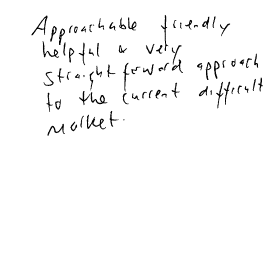 Approachable friendly
helpful & very
straight forward approach
to the current difficult
market.